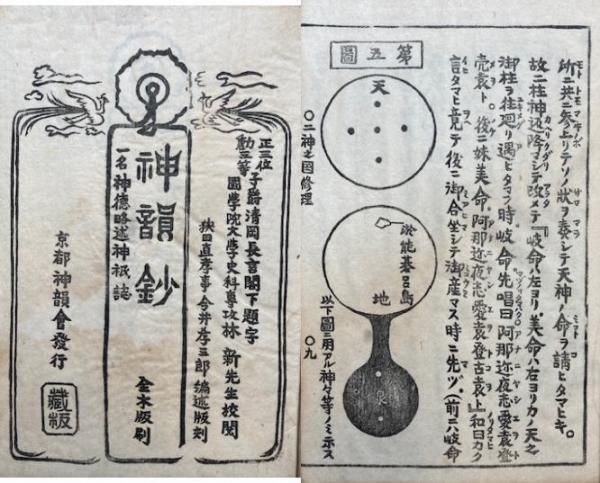 正三位
勳三等
子爵清岡長言閣下題字
國學院文學史科專攻林新先生校閲
狹田直孝事今井孝三郎編述版刻
全木版刷
神韻鈔
一名神德略述神祇誌
京都神韻會發行
藏版
所ニ共ニ参上リテソノ狀ヲ奏シテ天神ノ命ヲ請ヒタマヒキ。
故二柱神返降マシテ改メテ『岐命ハ左ヨリ美命ハ右ヨリカノ天之
御柱ヲ往廻リ遇ヒタマフ時岐命先唱曰阿那迩夜志愛袁登
売袁ト後ニ妹美命阿那迩夜志愛袁登古袁』和曰カク
言タマヒ竟テ後ニ御合坐シテ御産マス時ニ先ヅ(前ニハ岐命
第五圖
天
〇二神之国修理
淤能碁呂島
地
泉
以下圖ニ用アル神々等ノミホス
〇九